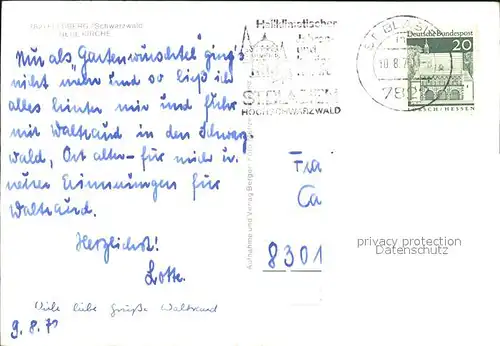 /Schwarzwald
KIRCHE
Nur als "Gartenwurschtel" ging's
nicht mehr und so ließ ich
alles hinter mir und fuhr
mit Waltraud in den Schwarz
wald, Ort alter - für mich u.
neuer Erinnerungen für
Waltraud.
Herzlichst!
Lotte.
Viele liebe Grüße Waltraud
9.8.70
Heilklimatischer
und
ST. BLASIEN
HOCHSCHWARZWALD
ST. BLASIEN
10.8.70
782
Deutsche Bundespost
20
HESSEN
Aufnahme und Verlag Berger
Fra
Ca
8301
privacy protection
Datenschutz